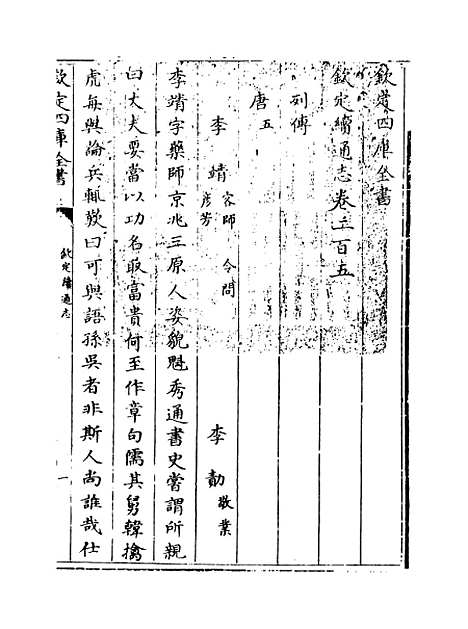 欽定四庫全書
欽定續通志卷二百五
列傳
唐五
李靖 客師 令問 彦芳 李勣 敬業
李靖字藥師京兆三原人姿貌魁秀通書史嘗謂所親
曰丈夫要當以功名取富貴何至作章句儒其舅韓擒
虎每與論兵輒歎曰可與語孫吳者非斯人尚誰哉仕
欽定四庫全書
欽定續通志
一